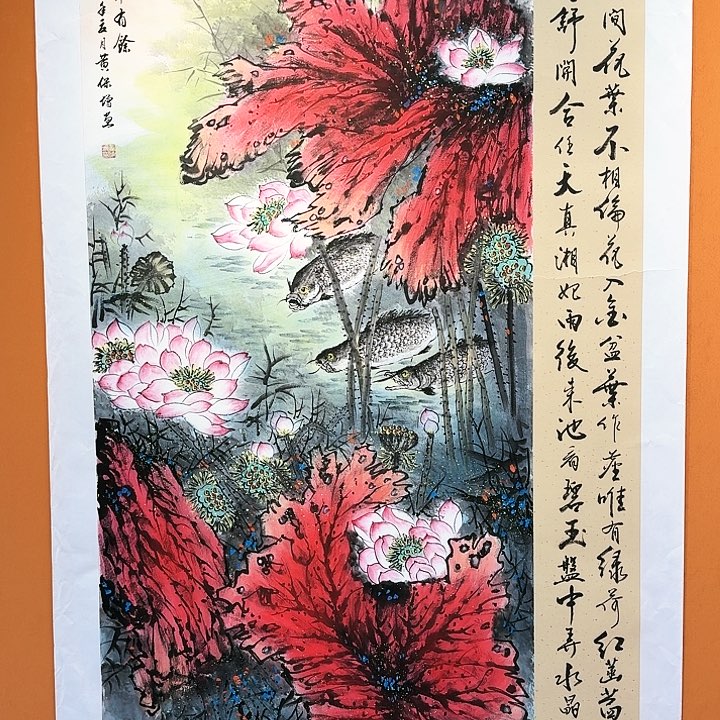 間花葉不相倫花入金盆葉作塵唯有綠荷紅菡萏
舒開合任天真湘妃雨後來池看碧玉盤中弄水晶
有餘
年夏月黄保增畫